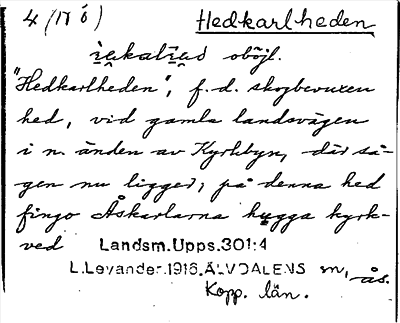 4 (17 6) Hedkarlheden
oböjl.
"Hedkarlheden", f.d. skogbevuxen
hed, vid gamla landsvägen
i n. änden av Kyrkbyn, där så-
gen nu ligger; på denna hed
fingo Åskarlarna hugga kyrk-
ved Landsm.Upps.301:4
L.Levander.1916.ÄLVDALENS sn, ås.
Kopp. län.